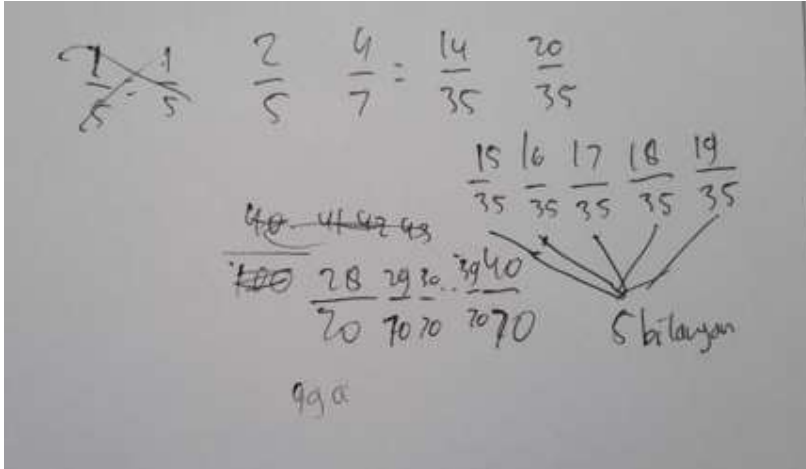 2/5 4/7 = 14/35 20/35
15/35 16/35 17/35 18/35 19/35
40 41 42 43
100
28/70 29/70 30/70 .. 39/70 40/70
5 bilangan